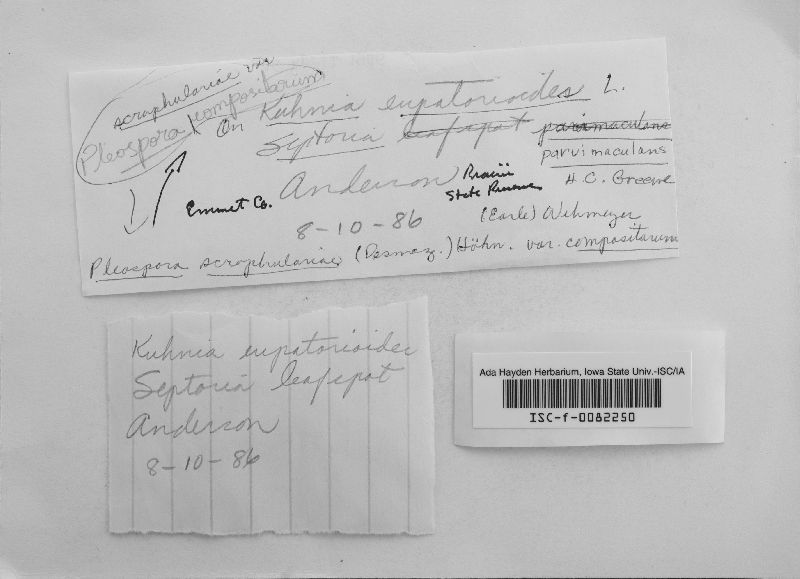 scrophulariae var
Pleospora compositarum
On Kuhnia eupatorioides L.
Septoria leafspot parvimaculans
parvimaculans
Anderson Prairie
State Preserve
H.C. Greene
Emmet Co.
8-10-86
(Earle) Wehmeyer
Pleospora scrophulariae (Desmaz.) Höhn. var. compositarum
Kuhnia eupatorioides
Septoria leafspot
Anderson
8-10-86
Ada Hayden Herbarium, Iowa State Univ.-ISC/IA
ISC-f-0082250